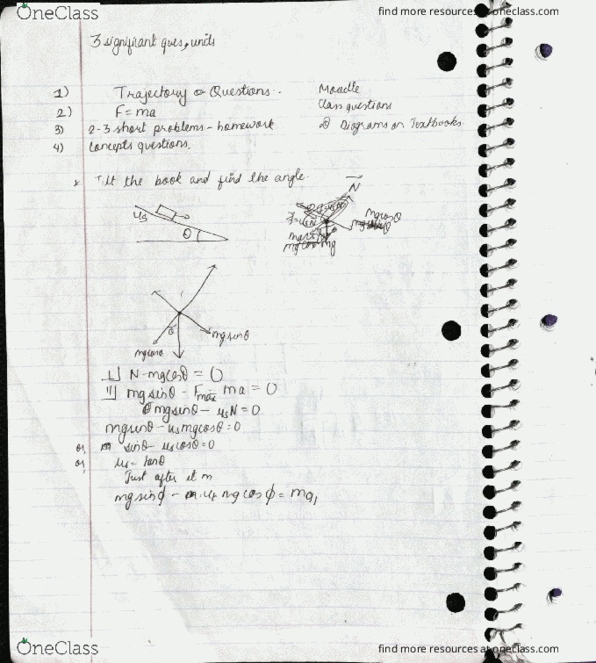 OneClass
find more resources at oneclass.com
3 significant ques, units
1) Trajectory Questions.
Moodle
2) F = ma
Class questions
3) 2-3 short problems - homework
Diagrams on Textbooks.
4) concepts questions.
Tilt the book and find the angle.
N
us
θ
mgcosθ
mg
θ
mgsinθ
mgcosθ
N - mgcosθ = 0
mgsinθ - Fmax = ma = 0
mgsinθ - usN = 0
mgsinθ - usmgcosθ = 0
or, sinθ - uscosθ = 0
or, us = tanθ
Just after it m
mgsinϕ - mg cosϕ = ma,
OneClass
find more resources at oneclass.com